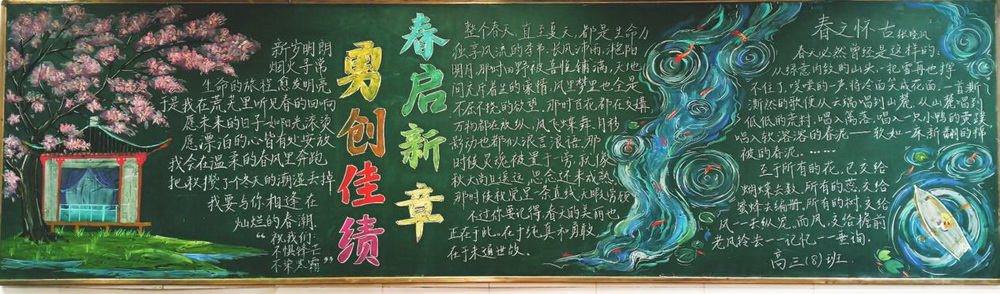 新岁明朗
烟火寻常
生命的旅程愈发明亮
于是我在荒芜里听见春的回响
愿未来的日子如阳光滚烫
愿漂泊的心皆有处安放
我会在温柔的春风里奔跑
把积攒了个冬天的潮湿去掉
我要与你相逢在
灿烂的春潮
“祝我们:
不惧碎
不寒霜”
勇创佳绩
春启新章
整个春天,直至夏天,都是生命力
独享风流的季节。长风沛雨,艳阳
明月,那时田野被喜悦铺满,天地
间充斥着生的豪情,风里梦里也全是
不屈不挠的欲望。那时百花都在交媾
万物都在放纵,风飞蝶舞、月移
影动也都似浪言浪语。那
时候灵魂被置于一旁,就像
秋天尚且遥远,思念还未成熟。
那时候视觉呈一条直线,无暇旁顾
不过你要记得,春天的美丽也
正在于此。在于纯真和勇敢
在于未通世故。
春之怀古 张晓风
春天必然曾经是这样的:
从绿意内敛的山头,一把雪再也撑
不住了,噗嗤的一声,将冷面笑成花面,一首澌
澌然的歌便从云端唱到山麓,从山麓唱到
低低的荒村,唱入篱落,唱入一只小鸭的黄蹼
唱入软溶溶的春泥——软如一床新翻的棉
被的春泥。……
至于所有的花,已交给
蝴蝶去数。所有的蕊,交给
蜜蜂去编册。所有的树,交给
风一去纵宠。而风,交给檐前
老风铃去一一记忆,一一垂询。
高三(8)班